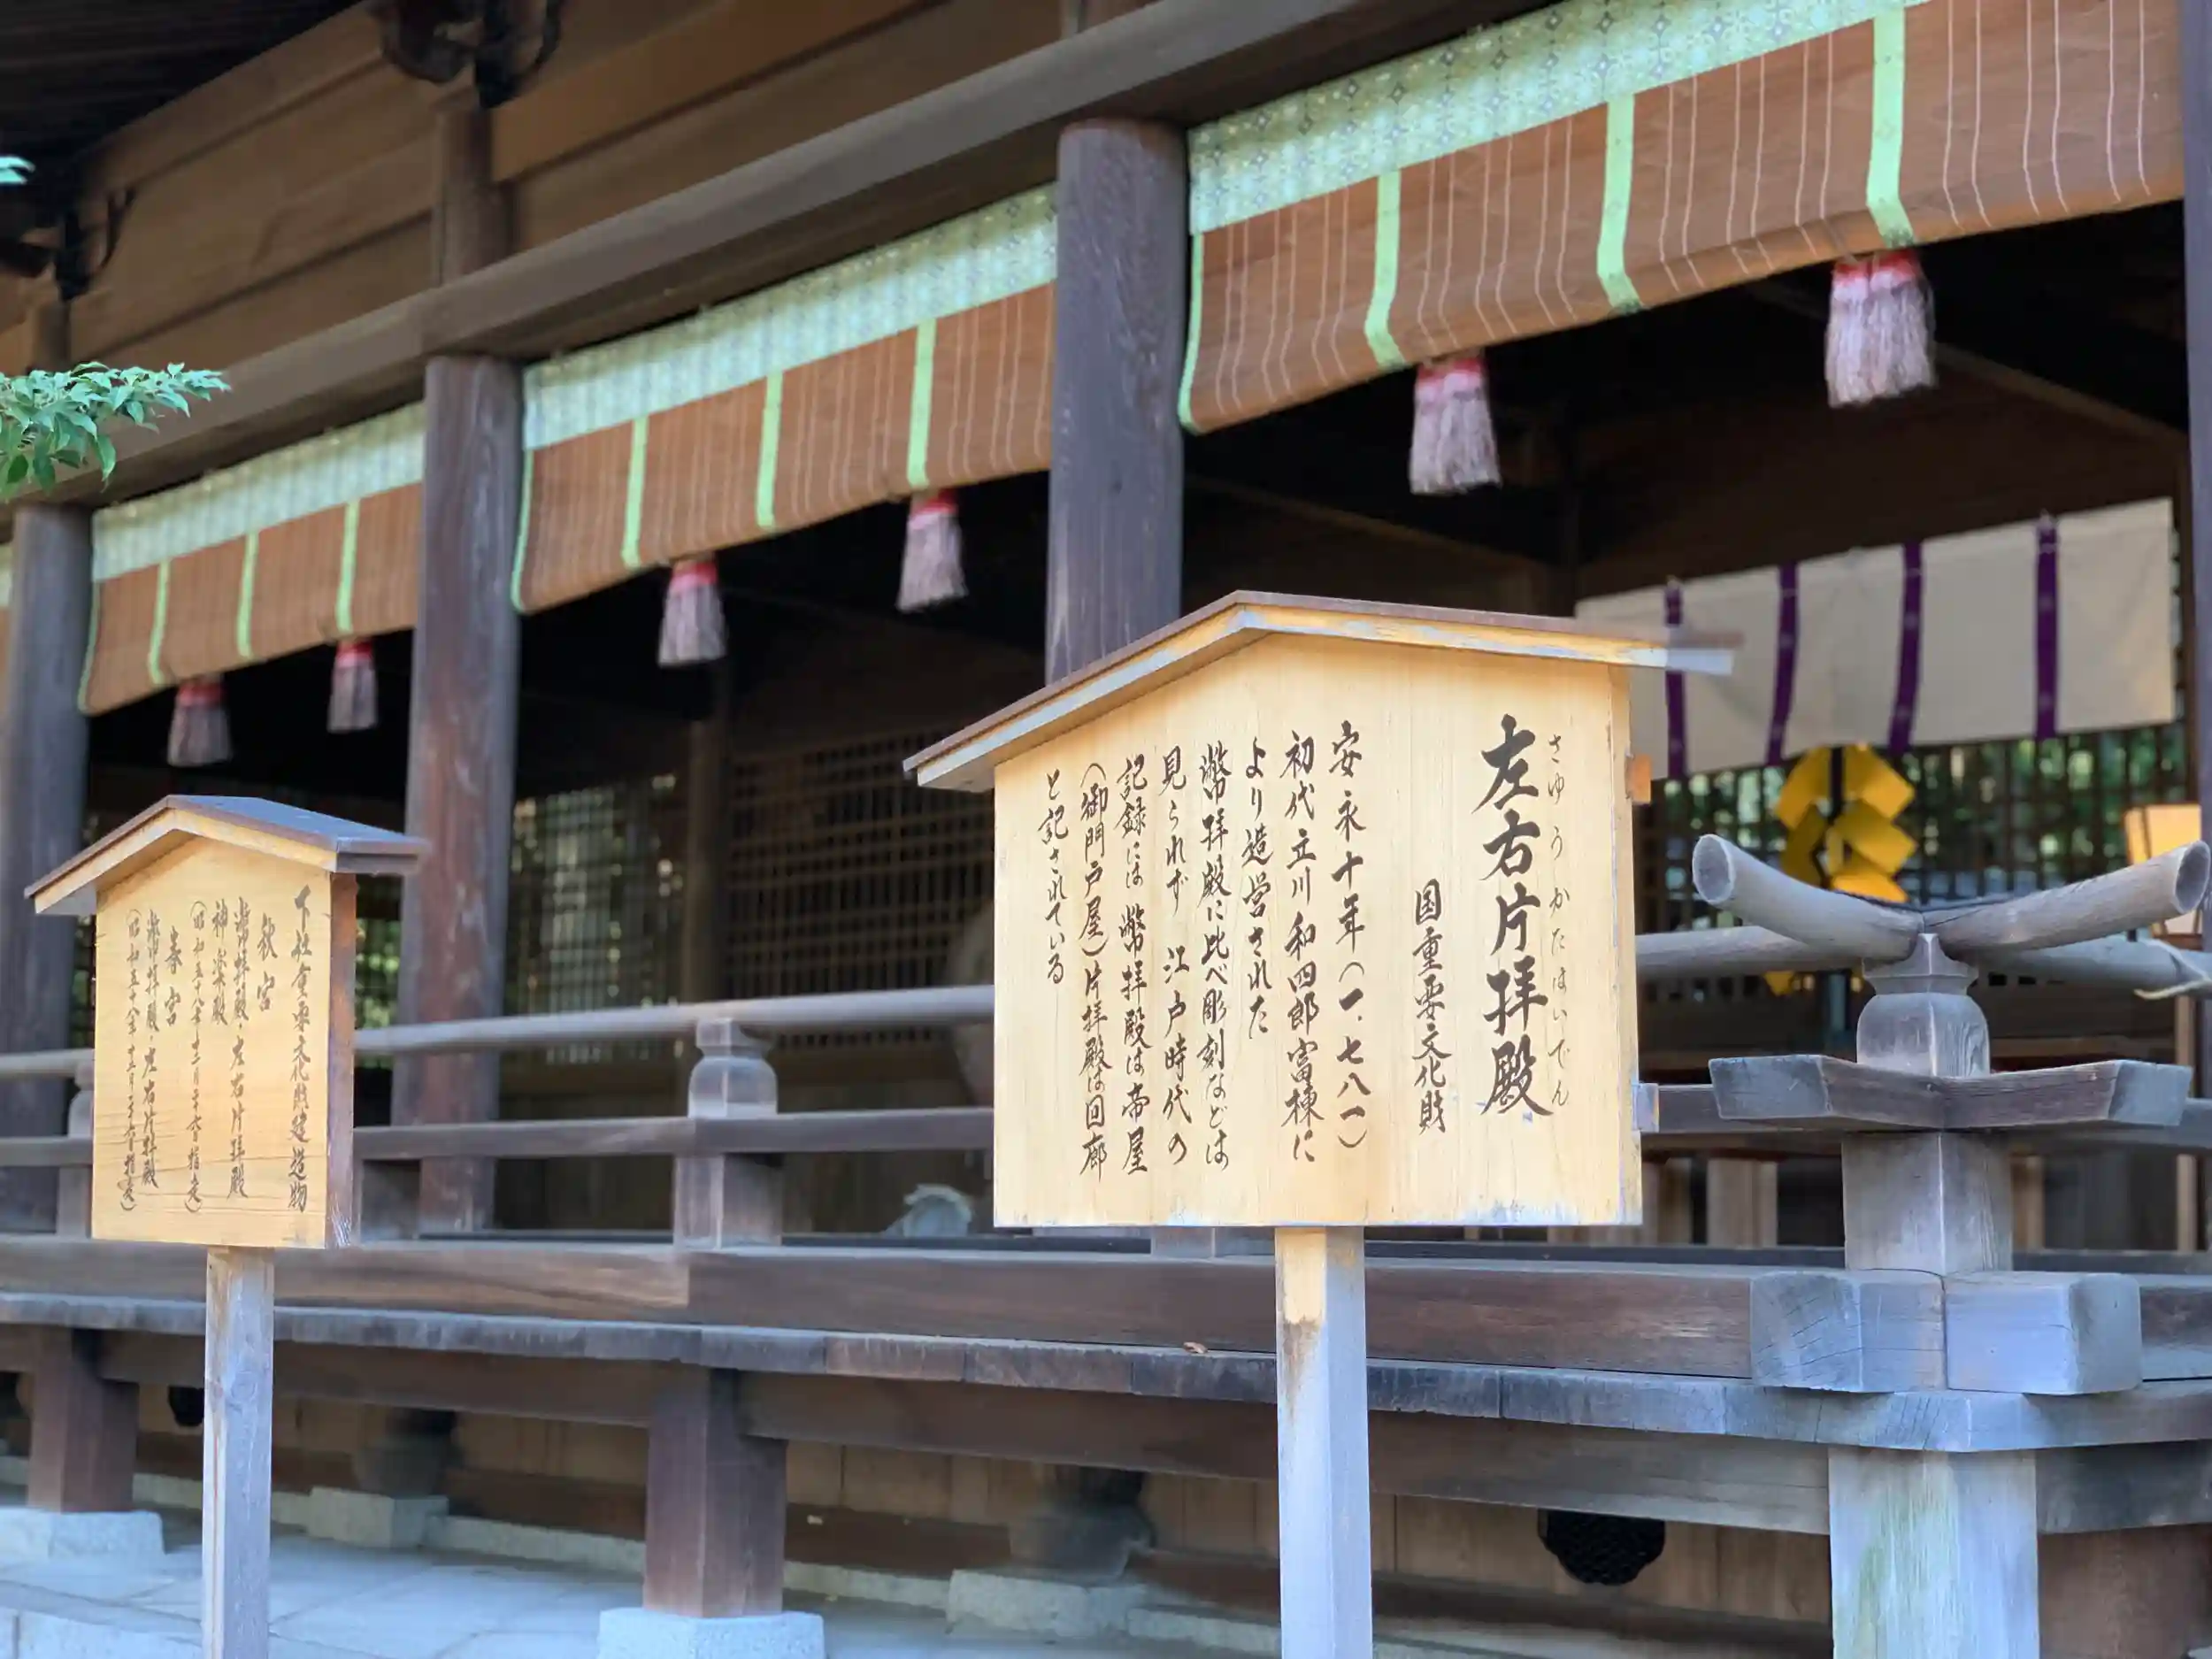 左右片拝殿
さゆうかたはいでん
国重要文化財
安永十年（一、七八一）
初代立川和四郎富棟に
より造営された
幣拝殿に比べ彫刻などは
見られず 江戸時代の
記録には 幣拝殿は帝屋
（御門戸屋）片拝殿は回廊
と記されている
下社重要文化財建造物
秋宮
幣拝殿・左右片拝殿
神楽殿
（昭和五十八年十二月二十六日指定）
春宮
幣拝殿・左右片拝殿
（昭和五十八年十二月二十六日指定）